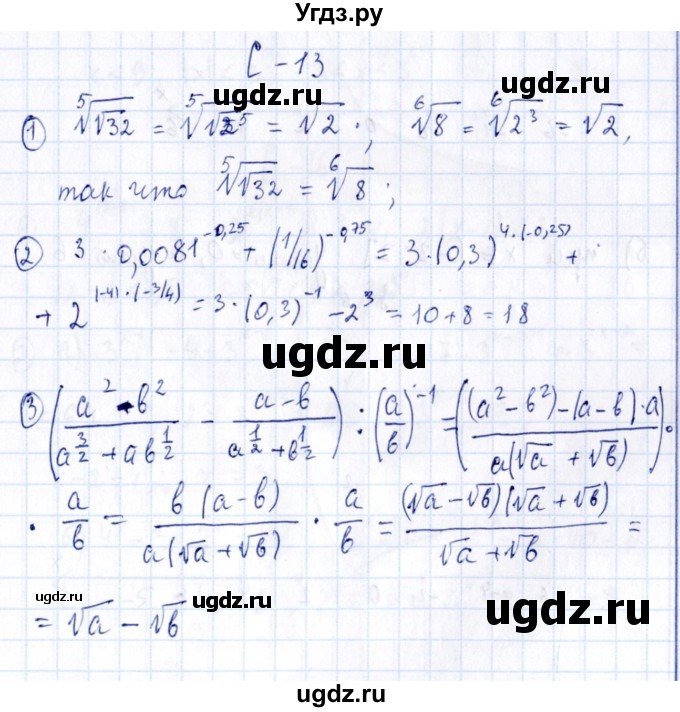 Угдз.ру
С - 13
ugdz.ru ugdz.ru
① ⁵√(√32) = ⁵√(√2⁵) = √2 ; ⁶√8 = ⁶√(2³) = √2,
так что ⁵√(√32) = ⁶√8 ;
② 3 · 0,0081^(-0,25) + (1/16)^(-0,75) = 3·(0,3)^(4·(-0,25)) +
+ 2^((-4)·(-3/4)) = 3·(0,3)^(-1) - 2^3 = 10 + 8 = 18
ugdz.ru
③ ((a² - b²)/(a^(3/2) + ab^(1/2)) - (a - b)/(a^(1/2) + b^(1/2))) : (a/b)^(-1) = (((a² - b²) - (a - b)·a)/(a(√a + √b))) ·
· a/b = (b(a - b))/(a(√a + √b)) · a/b = ((√a - √b)(√a + √b))/(√a + √b) =
ugdz.ru ugdz.ru ugdz.ru
= √a - √b
ugdz.ru